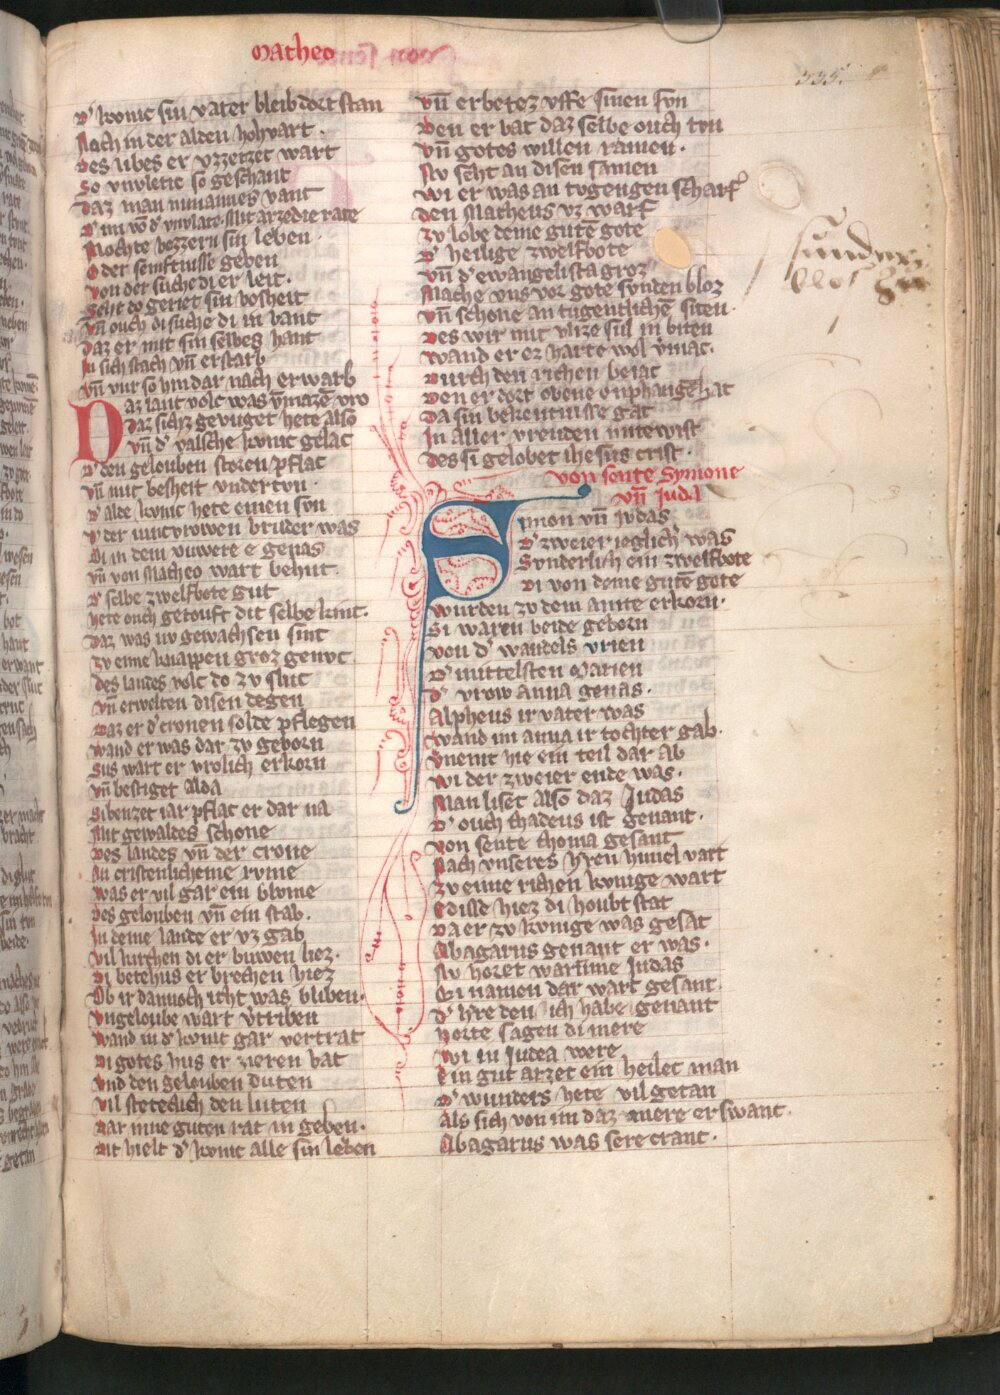 Matheo
335.
d' kvnic sin vater bleib dort stan
Nach in der alden hohvart .
Des libes er vzzetzet wart
So vnvletic so geschant
Daz man nimannes vant
D' im wd' vnvlate mit arzedie rate
Mochte bezzern sin leben .
Oder senftnisse geben
Von der suche di er leit .
Seht do geriet sin bosheit
Vn̄ ouch di suche di in bant
Daz er mit sin selbes hant
In sich stach vn̄ erstarb
Vn̄ vur so hin dar nach er warb
Daz lant volc was v̄mazē vro
Daz sichz gevuget hete also
Vn̄ d' valsche kvnic gelac
D' den gelouben storen pflac
Vn̄ mit bosheit vndertvn .
D' alde kvnic hete einen svn
D' der iuncvrowen bruder was
Di in dem vuwere e genas
Vn̄ von Matheo wart behut .
D' selbe zwelfbote gut
Hete ouch getouft dit selbe kint .
Daz was nv gewachsen sint
Zv eime knappen groz genvc
Des landes volc do zv sluc
Vn̄ erwelten disen degen
Daz er d' cronen solde pflegen
Wand er was dar zv geborn
Sus wart er vrolich erkorn
Vn̄ bestiget alda
Sibenzet iar pflac er dar na
Mit gewaldes schone
Des landes vn̄ der crone
An cristenlicheme rvme
Was er vil gar ein blvme
Des gelouben vn̄ ein stab .
In deme lande er vz gab
Vil kirchen di er buwen liez .
Di betehus er brechen hiez
Ob ir dannoch icht was bliben .
Vngeloube wart v̄triben
Wand in d' kvnic gar vertrat
Di gotes hus er zieren bat
Vnd den gelouben duten
Vil stetedich den luten
Dar inne guten rat in geben .
Dit hielt d' kvnic alle sin leben
Vn̄ erbetez vffe sinen svn
Den er bat daz selbe ouch tvn
Vn̄ gotes willen ramen .
Nv seht an disen samen
Wi er was an tvgengen scharf
Den Matheus vz warf
Zv lobe deme gute gote
D' heilige zwelfbote
Vn̄ d' ewangelista groz
Mache vns vor gote svnden bloz
Vn̄ schone an tugentlichē siten .
Des wir mit vlize sul in biten
Wand er ez harte wol v̄mac .
Durch den richen beiac
Den er dort obene enphangē hat
Da sin bekentnisse gat
In aller vreuden mitewist
Des si gelobet ihesus crist .
von sente Symone
vn̄ Juda
Symon vn̄ Judas
D' zweier ieglich was
Svnderlich ein zwelfbote
Di von deme gutē gote
Wurden zv dem amte erkorn .
Si waren beide geborn
Von d' wandels vrien
D' mittelsten Marien
D' vrow anna genas .
Alpheus ir vater was
Wand im anna ir tochter gab .
Vnemt hie ein teil dar ab
Wi der zweier ende was .
Man liset also daz Judas
D' ouch thadeus ist genant .
Von sente thoma gesant
Nach vnseres h'ren himel vart
Zv eime richen kvnige wart
Edisse hiez di houbt stat
Da er zv kvnige was gesat
Abagarus genant er was .
Nv horet warume Judas
Bi namen dar wart gesant .
D' h're den ich habe genant
Horte sagen di mere
Wi in Judea were
Ein gut arzet ein heilet man
D' wunders hete vil getan
Als sich von im daz mere erswant .
Abagarus was sere cranc .